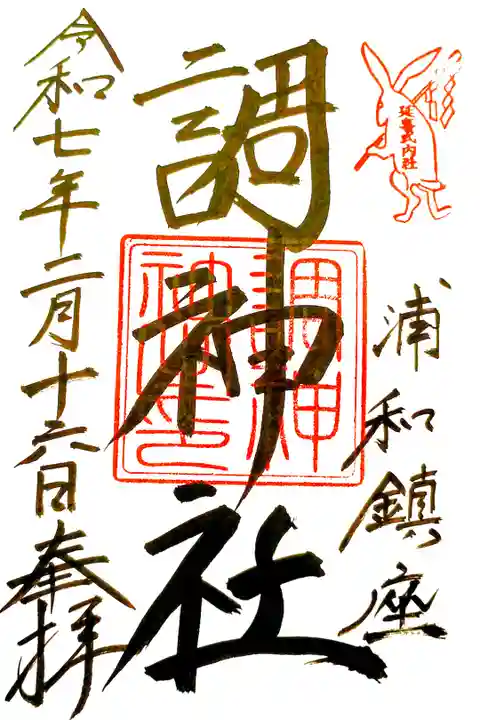 延喜式内社
浦和鎮座
調神社
令和七年二月十六日奉拝